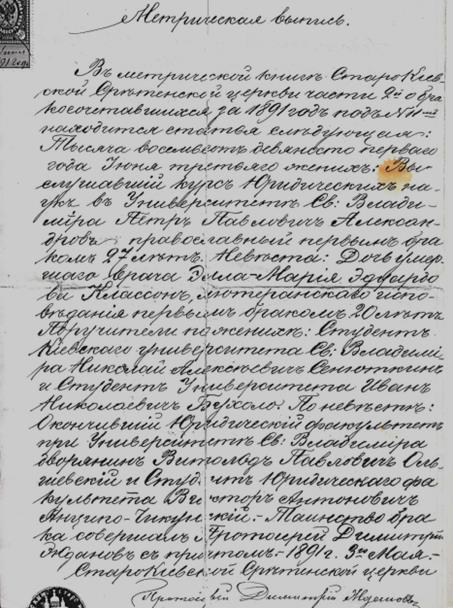 Метрическая выпись.
Въ метрической книгѣ Старо Кіев-
ской Срѣтенской церкви части 2й о бра-
косочетавшихся за 1891 годъ подъ №
находится статья слѣдующая:
Тысяча восемьсотъ девяносто перваго
года Іюня третьяго женихъ: Вы-
слушавшій курсъ Юридическихъ на-
укъ въ Университетѣ Св: Влади-
міра Петръ Павловичъ Алексан-
дровъ православный первымъ бра-
комъ 27 лѣтъ. Невѣста: Дочь умер-
шаго врача Элла-Марія Эдуардо
ва Классонъ, лютеранскаго испо-
вѣданія первымъ бракомъ 20 лѣтъ
Поручители по женихѣ: Студентъ
Кіевскаго университета Св: Владимі-
ра Николай Алексѣевичъ Сенюткинъ
и Студентъ Университета Иванъ
Николаевичъ Бухало. По невѣстѣ:
Окончившій Юридической факультетъ
при Университетѣ Св: Владиміра
дворянинъ Витольдъ Павловичъ Оль-
шевскій и Студентъ Юридическаго фа
культета Викторъ Антоновичъ
Анципо-Чикунскій.- Таинство бра-
ка совершалъ Протоіерей Димитрій
Ждановъ съ причтомъ.- 1891 г. 3го Мая.-
Старо Кіевской Срѣтенской церкви
Протоіерей Димитрій Ждановъ